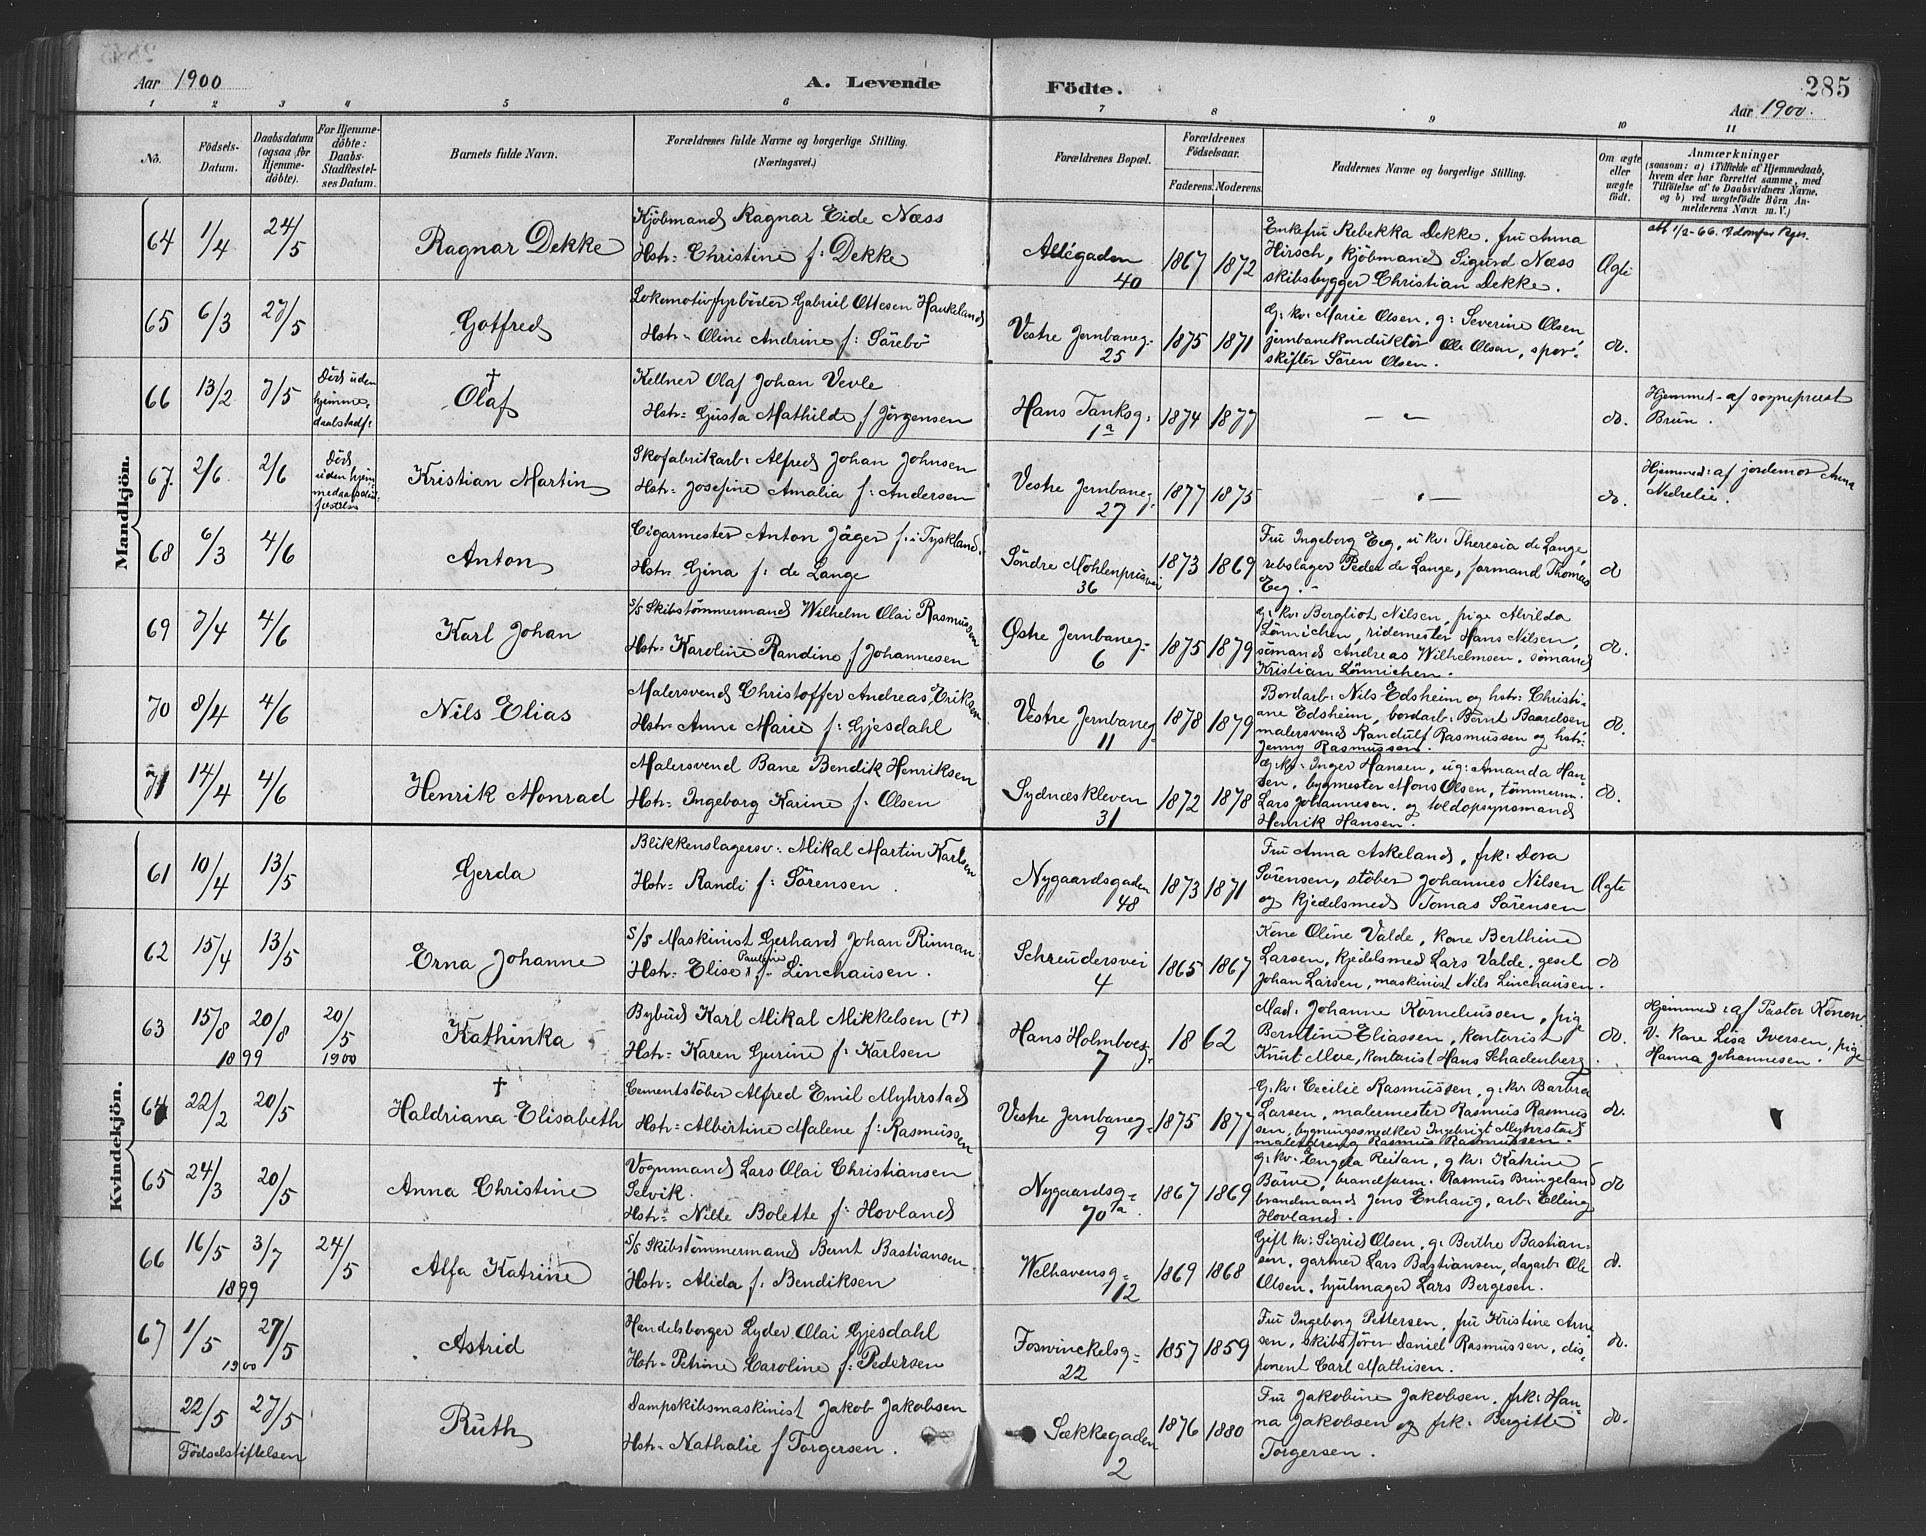 Aar 1900
A. Levende Födte.
285
Aar 1900.
1 2 3 4 5 6 7 8 9 10 11
No.
Födsels-
Datum.
Daabsdatum
(ogsaa for
Hjemme-
döbte).
For Hjemme-
döbte:
Daabs-
Stadfæstel-
ses Datum.
Barnets fulde Navn.
Forældrenes fulde Navne og borgerlige Stilling.
(Næringsvei.)
Forældrenes Bopæl.
Forældrenes
Födselsaar.
Faderens. Moderens.
Faddernes Navne og borgerlige Stilling.
Om ægte
eller
uægte
födt.
Anmærkninger
(saasom: a) i Tilfælde af Hjemmedaab,
hvem der har forrettet samme, med
Tilföielse af to Daabsvidners Navne.
og b) ved uægtefödte Börn An-
melderens Navn m. V.)
Mandkjön.
64 1/4 24/5
Ragnar Dekke
Kjöbmand Ragnar Eide Næss
Hstr: Christine f: Dekke
Allégaden
40
1867 1872
Enkefru Rebekka Dekke. fru Anna
Hirsch, kjöbmand Sigurd Næss
skibsbygger Christian Dekke.
Ægte
65 6/3 27/5
Gotfred
Lokomotivfyrböder Gabriel Ottesen Haukeland
Hstr: Oline Andrine f: Sörebö
Vestre Jernbaneg:
25
1875 1871
G: kv: Marie Olsen, g: Severine Olsen,
jernbanekonduktör Ole Olsen, spor-
skifter Sören Olsen.
do.
66 13/2 7/5
Död uden
hjemme-
daabstadf:
†
Olaf
Kellner Olaf Johan Vevle
Hstr: Gusta Mathilde f: Jörgensen
Hans Tanksg:
1a
1874 1877
do.
Hjemmed: af sogneprest
Brun.
67. 2/6 2/6
Död
uden hjem
Kristian Martin
Skofabrikarb: Alfred Johan Johnsen
Hstr: Josefine Amalia f: Andersen
Vestre Jernbaneg:
27
1877 1875
do.
Hjemmed: af jordemor Anna
Nedrelie.
68 6/3 4/6
Anton
Cigarmester Anton Jäger f. i Tyskland.
Hstr: Gina f: de Lange
Söndre Möhlenprisvei
36
1873 1869
Fru Ingeborg Eeg, u kv: Theresia de Lange,
rebslager Peder de Lange, formand Thomas
Eeg.
do
69 7/4 4/6
Karl Johan
S/S Skibstömmermand Wilhelm Olai Rasmussen
Hstr: Karoline Randine f Johannesen
Østre Jernbaneg:
6
1875 1879
g: kv: Bergliot Nilsen, pige Alvilda
Lönnichen, ridemester Hans Nilsen,
sömand Andreas Wilhelmsen. sömand
Kristian Lönnichen.
do.
70 8/4 4/6
Nils Elias
Malersvend Christoffer Andreas Eriksen
Hstr: Anne Marie f: Gjesdahl
Vestre Jernbaneg:
11
1878 1879
Bordarb: Nils Edsheim og hstr: Christi-
ane Edsheim, bordarb: Bernt Baardsen
malersvend Randulf Rasmussen og hstr:
Jenny Rasmussen.
do.
71 14/4 4/6
Henrik Monrad
Malersvend Bane Bendik Henriksen
Hstr: Ingeborg Karine f: Olsen
Sydnæskleven
31
1872 1878
G: kv: Inger Hansen, ug: Amanda Han-
sen, bygmester Mons Olsen, tömmerm:
Lars Johannesen. og toldopsynsmand
Henrik Hansen.
do.
Kvindekjön.
61 10/4 13/5
Gerda
Blikkenslagersv: Mikal Martin Karlsen
Hstr: Randi f: Sörensen.
Nygaardsgaden
48
1873 1871
Fru Anna Askeland, frk: Dora
Sörensen, stöber Johannes Nilsen
og kjedelsmed Tomas Sörensen
Ægte
62 15/4 13/5
Erna Johanne
S/S Maskinist Gerhard Johan Rinnan.
Hstr: Elise Pauline f: Linchausen.
Schreudersvei
4
1865 1867
Kone Oline Valde, kone Berthine
Larsen, kjedelsmed Lars Valde, gesel
Johan Larsen, maskinist Nils Linchausen.
do
63 15/8 20/8 20/5
1899 1900
Kathinka
Bybud Karl Mikal Mikkelsen (†)
Hstr: Karen Gurine f: Karlsen
Hans Holmboesg:
7
1862
Mad. Johanne Korneliussen, pige
Berntine Eliassen, kontorist
Knut Moe, kontorist Hans Schadenberg
do.
Hjemmed: af Pastor Konow.
V. kone Lisa Iversen, pige
Hanna Johannesen.
64 22/2 20/5
†
Haldriana Elisabeth
Cementstöber Alfred Emil Myhrstad
Hstr: Albertine Malene f: Rasmussen
Vestre Jernbaneg:
9
1875 1877
G: kv: Cecilie Rasmussen, g: kv: Barbra
Larsen, malermester Rasmus Rasmus
sen, bygningssnedker Ingebrigt Myhrstad
malerdreng Rasmus Rasmussen.
do.
65 24/3 20/5
Anna Christine
Vognmand Lars Olai Christiansen
Selvik.
Hstr: Nille Bolette f: Hovland
Nygaardsg:
70a.
1867 1869
g: kv: Engela Reitan, g kv: Katrine
Börve, brandform. Rasmus Bringeland
brandmand Jens Enhaug, arb: Elling
Hovland.
do
66 16/5 3/7 24/5
1899
Alfa Katrine
S/S Skibstömmermand Bernt Bastiansen
Hstr: Alida f: Bendiksen
Welhavensg:
12
1869 1868
Gift kv: Sigrid Olsen, g: Berthe Bastian-
sen, gartner Lars Bastiansen, dagarb: Ole
Olsen, hjulmager Lars Bergesen.
do.
67 1/5 27/5
1900
Astrid
Handelsborger Lyder Olai Gjesdahl
Hstr: Petrine Caroline f: Pedersen
Fosswinckelsg:
22
1857 1859
Fru Ingeborg Pettersen, fru Kristine Arne
sen, skibsförer Daniel Rasmussen, dis-
ponent Carl Mathisen.
do.
22/5 27/5
Födselsstiftelsen
Ruth
Dampskibsmaskinist Jakob Jakobsen
Hstr: Nathalie f Torgersen.
Sækkegaden
2
1876 1880
Fru Jakobine Jakobsen, frk: Han-
na Jakobsen og frk: Bergitte
Torgersen.
do.